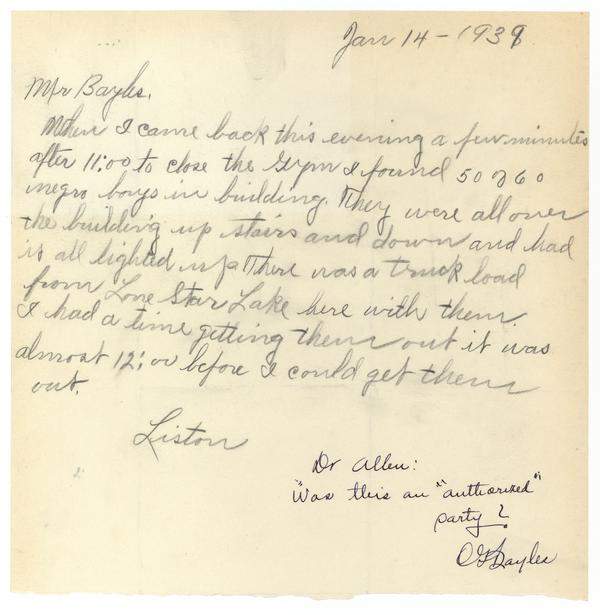 Jan 14 - 1939
Mr Bayles.
When I came back this evening a few minutes
after 11:00 to close the Gym I found 50 or 60
negro boys in building. They were all over
the building up stairs and down and had
is all lighted up There was a truck load
from Lone Star Lake here with them.
I had a time getting them out it was
almost 12:00 before I could get them
out.
Liston
Dr Allen:
"Was this an "authorized"
party?
Bayles